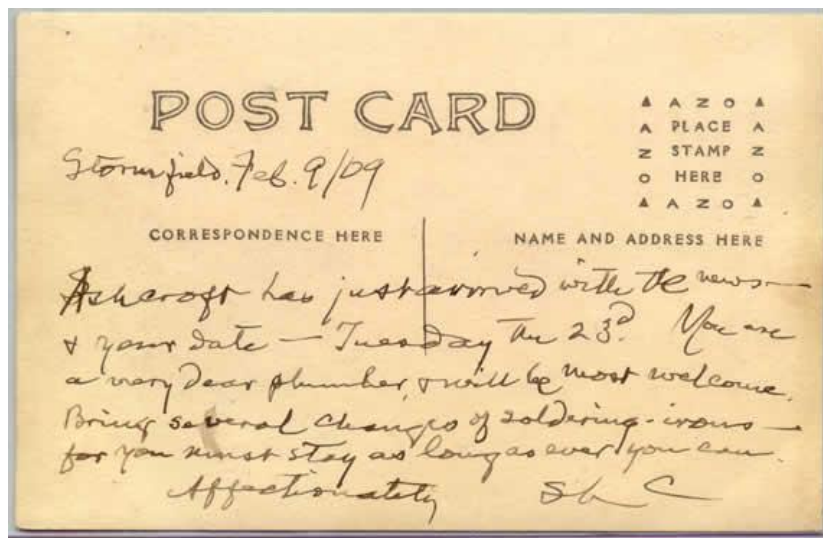 POST CARD
▲ A Z O ▲
A PLACE A
Z STAMP Z
O HERE O
▲ A Z O ▲
Stormfield, Feb. 9/09
CORRESPONDENCE HERE
NAME AND ADDRESS HERE
Ashcroft has just arrived with the news—
& your date — Tuesday the 23d. You are
a very dear plumber, & will be most welcome.
Bring several changes of soldering-irons —
for you must stay as long as ever you can.
Affectionately
SLC